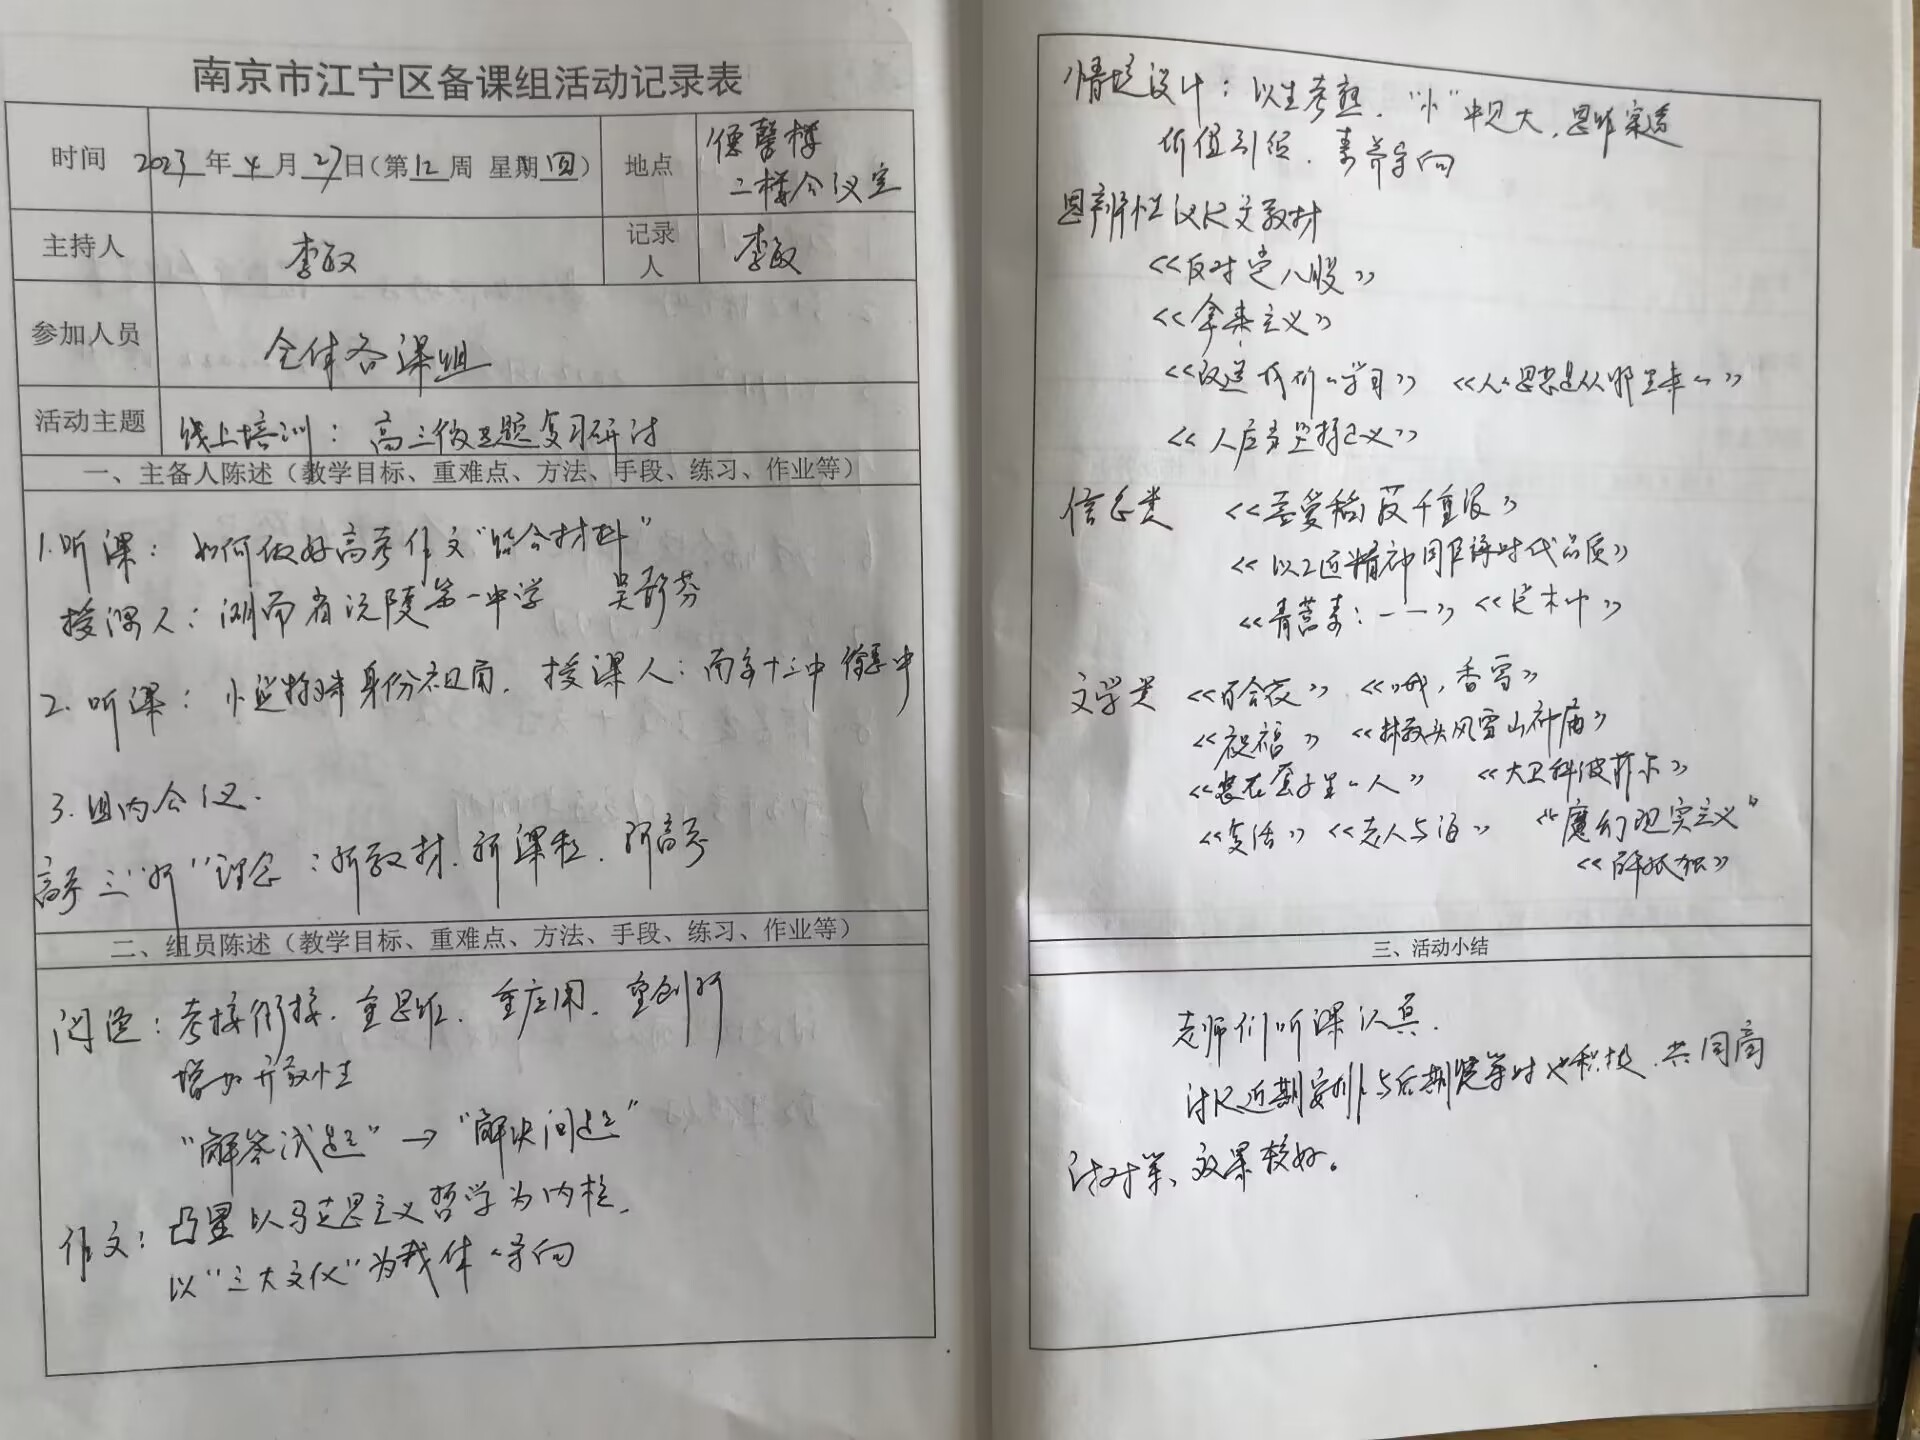 南京市江宁区备课组活动记录表
时间 2023年4月27日(第12周 星期四) 地点 德馨楼
二楼会议室
主持人 李敏 记录人 李敏
参加人员 全体备课组
活动主题 线上培训：高三微专题复习研讨
一、主备人陈述（教学目标、重难点、方法、手段、练习、作业等）
1.听课：如何做好高考作文“结合材料”
授课人：湖南省沅陵第一中学 吴
2.听课：小说 身份视角，授课人：南京十三中 中
3.组内会议.
高考三“新”理念：新教材、新课程、新高考
二、组员陈述（教学目标、重难点、方法、手段、练习、作业等）
阅读：考接衔接、重思维、重应用、重创新
增加开放性
“解答试题”→“解决问题”
作文：凸显以马克思主义哲学为内核,
以“三大文化”为载体 导向
情境设计：以生考熟，“小”中见大，
价值引领、素养导向
思辨性议论文教材
《反对党八股》
《拿来主义》
《改造我们的学习》 《人的思想是从哪里来的》
《人应当坚持正义》
信息类 《喜看稻菽千重浪》
《以工匠精神 时代品质》
《青蒿素：一一》
文学类 《百合花》 《哦，香雪》
《祝福》 《林教头风雪山神庙》
《装在套子里的人》 《大卫科波菲尔》
《复活》 《老人与海》 “魔幻现实主义”
《 孤独》
三、活动小结
老师们听课认真.
讨论近期安排与后期 时也积极，共同商
讨对策、效果较好。